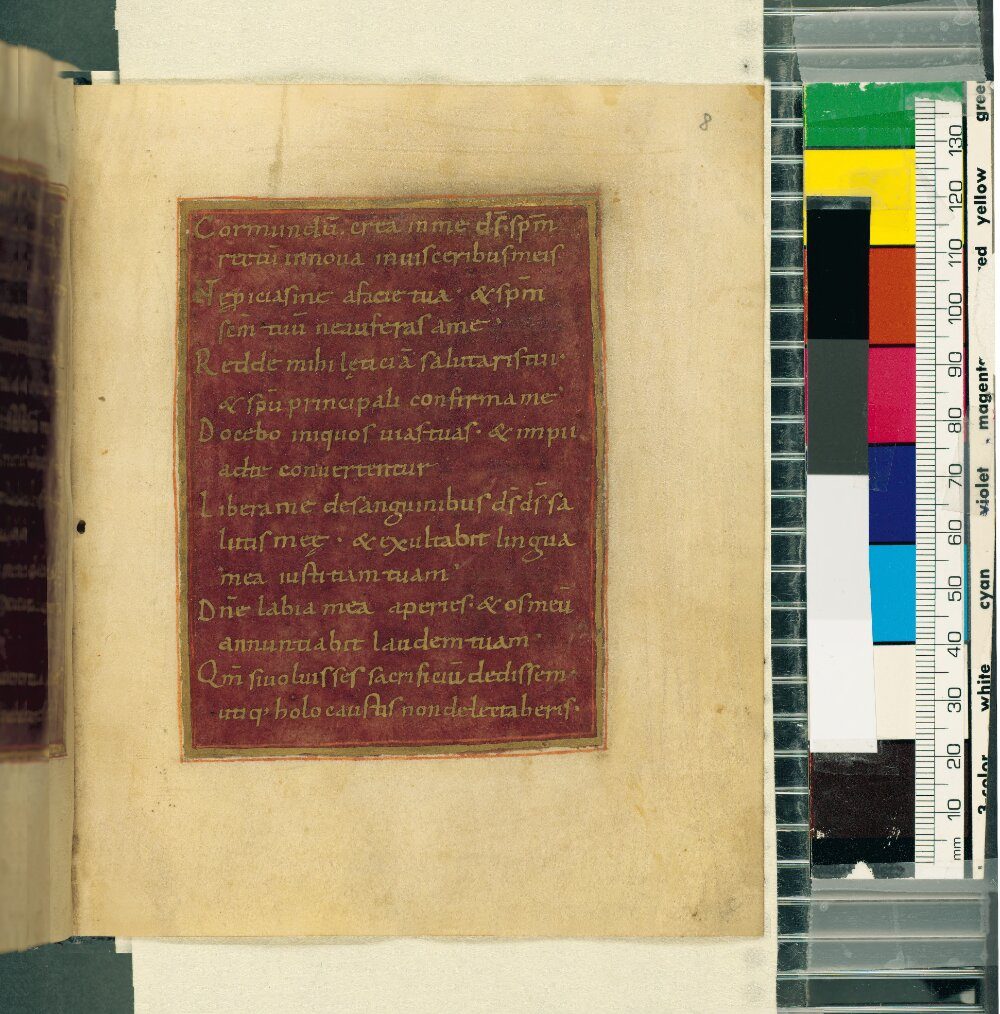 8
Cor mundū. crea inme d̄s. sp̄m
rectū innova inuisceribus meis.
Nęp̱iciasme afacie tua. & sp̄m
sc̄m tuū neauferas ame.
Redde mihi lęticiā salutaris tui.
& sp̄u principali confirma me.
Docebo iniquos uias tuas. & impii
adte conuertentur
Liberame desanguinibus d̄s d̄s sa
lutis meę. & exultabit lingua
mea iustitiam tuam.
Dn̄e labia mea aperies. & os meū
annuntiabit laudem tuam.
Qm̄ si uoluisses sacrificiū dedissem.
utiq; holocaustis non delectaberis.
3-color white cyan violet magent yellow gree
mm 10 20 30 40 50 60 70 80 90 100 110 120 130